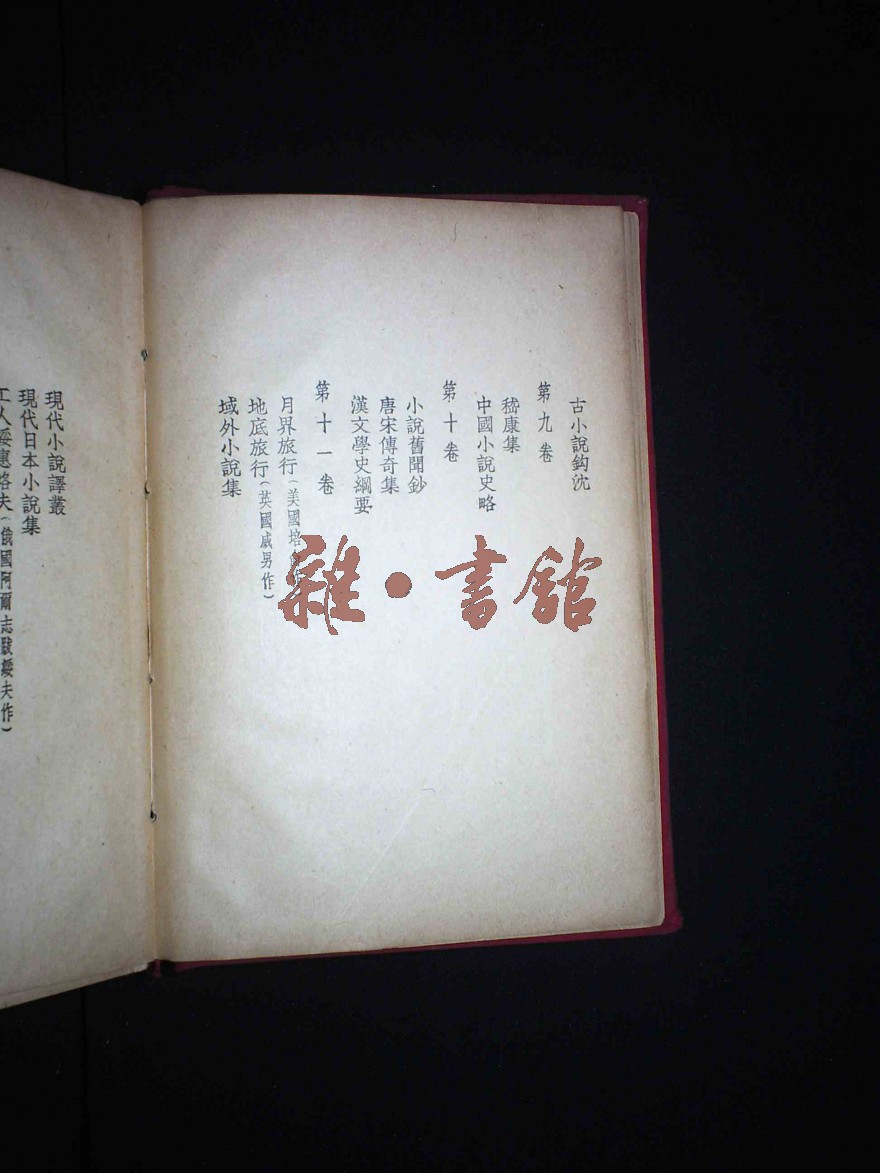 古小說鈎沈
第九卷
嵇康集
中國小說史略
第十卷
小說舊聞鈔
唐宋傳奇集
漢文學史綱要
第十一卷
月界旅行（美國培
地底旅行（英國威男作）
域外小說集
現代小說譯叢
現代日本小說集
工人綏惠略夫（俄國阿爾志跋綏夫作）
雜•書館